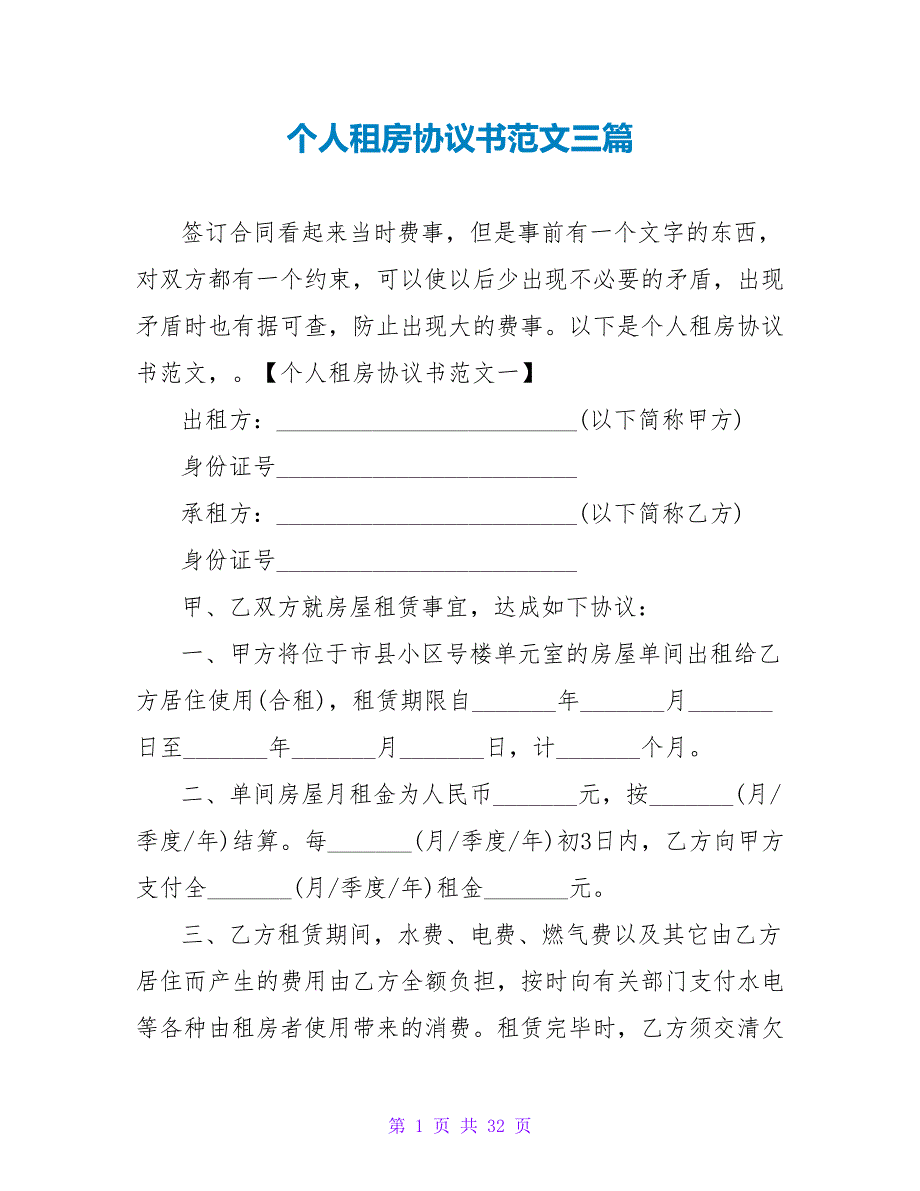 个人租房协议书范文三篇
签订合同看起来当时费事，但是事前有一个文字的东西，
对双方都有一个约束，可以使以后少出现不必要的矛盾，出现
矛盾时也有据可查，防止出现大的费事。以下是个人租房协议
书范文，。【个人租房协议书范文一】
出租方：_________________________(以下简称甲方)
身份证号_________________________
承租方：_________________________(以下简称乙方)
身份证号_________________________
甲、乙双方就房屋租赁事宜，达成如下协议：
一、甲方将位于市县小区号楼单元室的房屋单间出租给乙
方居住使用(合租)，租赁期限自_______年_______月_______
日至_______年_______月_______日，计_______个月。
二、单间房屋月租金为人民币_______元，按_______(月/
季度/年)结算。每_______(月/季度/年)初3日内，乙方向甲方
支付全_______(月/季度/年)租金_______元。
三、乙方租赁期间，水费、电费、燃气费以及其它由乙方
居住而产生的费用由乙方全额负担，按时向有关部门支付水电
等各种由租房者使用带来的消费。租赁完毕时，乙方须交清欠
第 1 页 共 32 页